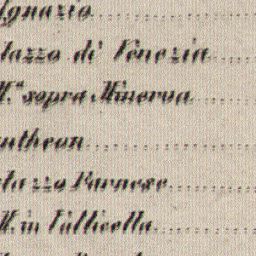 Ignazio
lazzo di Venezia
M.a sopra Minerva
ntheon
lazzo Farnese
M. in Vallicella